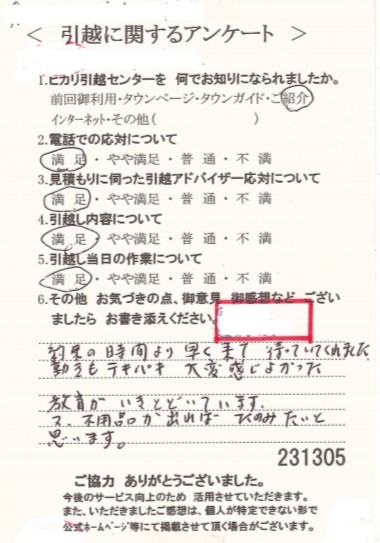 < 引越に関するアンケート >
1.ヒカリ引越センターを 何でお知りになられましたか。
前回御利用・タウンページ・タウンガイド・ご紹介
インターネット・その他( )
2.電話での応対について
満 足・ やや満足・普 通・不 満
3.見積もりに伺った引越アドバイザー応対について
満 足・ やや満足・普 通・不 満
4.引越し内容について
満 足・ やや満足・普 通・不 満
5.引越し当日の作業について
満 足・ やや満足・普 通・不 満
6.その他 お気づきの点、御意見 御感想など ござい
ましたら お書き添えください。
約束の時間より早く来て 待っていてくれました
動きもテキパキ 大変感じよかった
教育が いきとどいています。
又、不用品が出れば たのみたいと
思います。
231305
ご協力 ありがとうございました。
今後のサービス向上のため 活用させていただきます。
また、いただきましたご感想は、個人が特定できない形で
公式ホームページ等にて掲載させて頂く場合がございます。